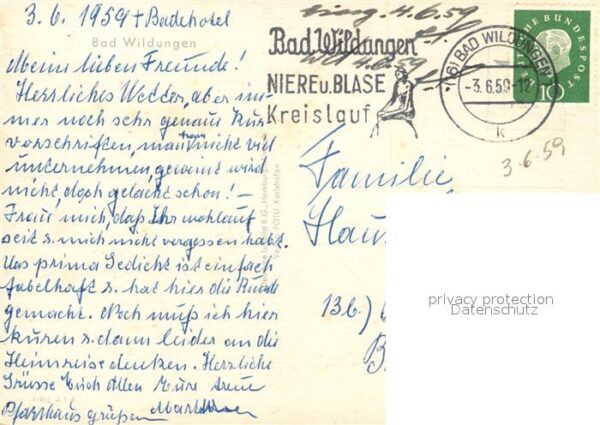 3. 6. 1959 + Badehotel
Bad Wildungen
Meine lieben Freunde!
Herrliches Wetter, aber im-
mer noch sehr genaue Kur
vorschriften, man kann nicht viel
unternehmen, geweint wird
nicht, doch gelacht schon! –
Freut mich, daß Ihr wohlauf
seit u. mich nicht vergessen habt.
Das prima Gedicht ist einfach
fabelhaft u. hat hier die Runde
gemacht. Noch muß ich hier
kuren u. dann leider an die
Heimreise denken. Herzliche
Grüsse Euch Allen Eure treue
Pfarrhaus grüßen
4. 6. 59
Bad Wildungen
4. 6. 59
NIERE u. BLASE
Kreislauf
(16) BAD WILDUNGEN
-3.6.59-12
k
DEUTSCHE BUNDESPOST
10
3.6.59
Familie
Hau
13b.)
B
privacy protection
Datenschutz